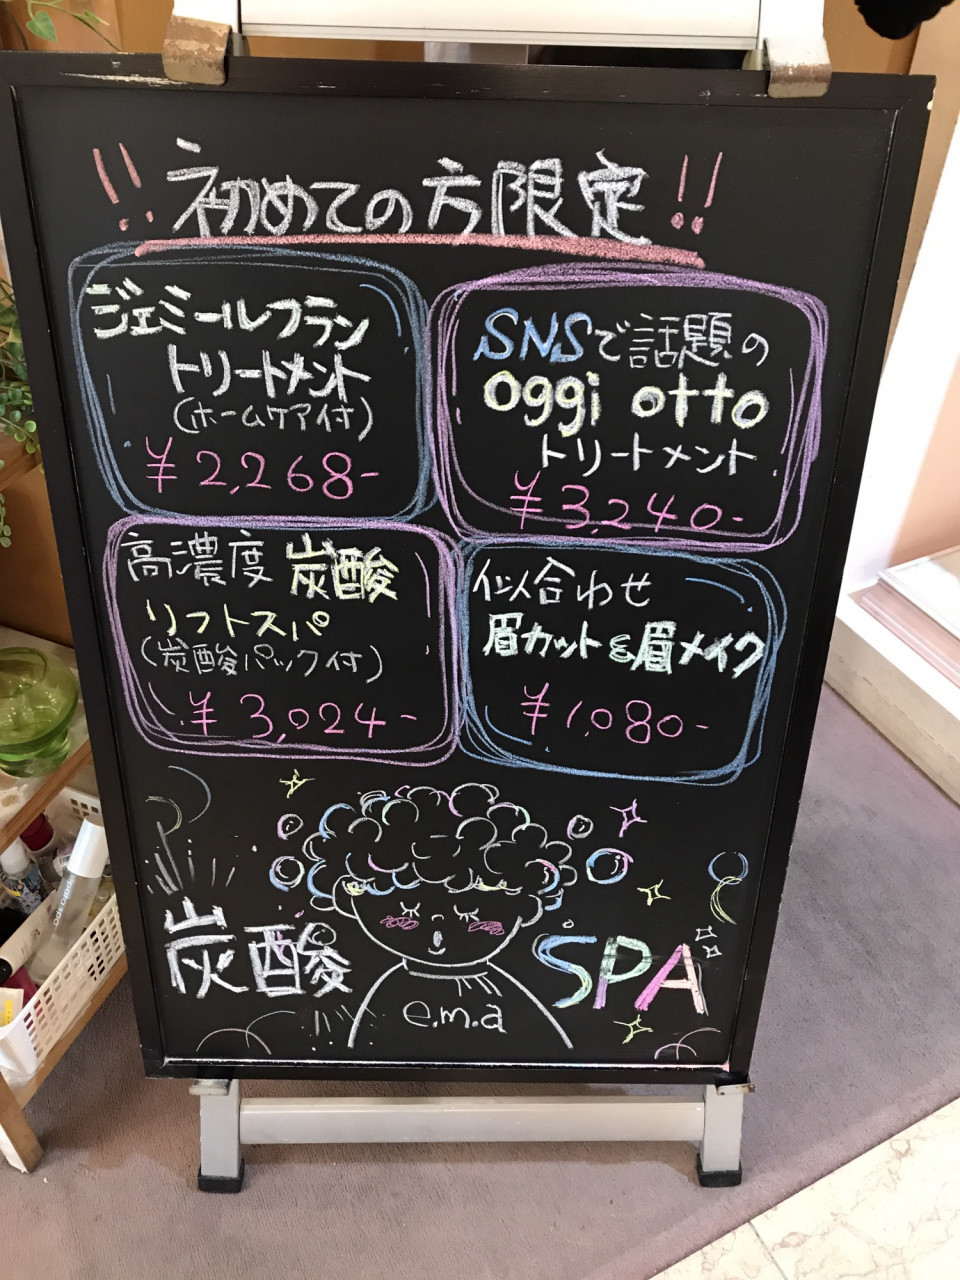 !!初めての方限定!!
ジェミールフラン
トリートメント
(ホームケア付)
¥2,268-
SNSで話題の
oggi otto
トリートメント
¥3,240-
高濃度 炭酸
リフトスパ
(炭酸パック付)
¥3,024-
似合わせ
眉カット&眉メイク
¥1,080-
炭酸 SPA
e.m.a